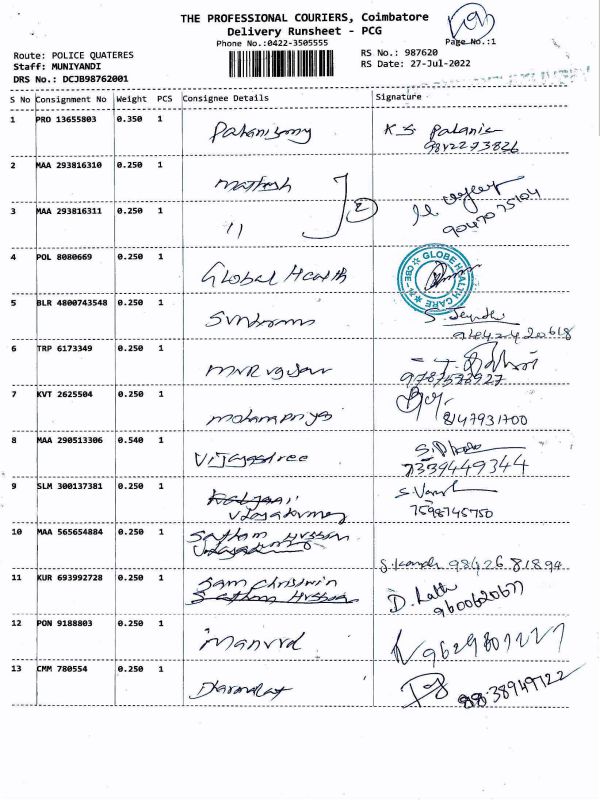 THE PROFESSIONAL COURIERS, Coimbatore
Delivery Runsheet - PCG
Phone No.:0422-3505555
Page No.:1
Route: POLICE QUATERES
Staff: MUNIYANDI
DRS No.: DCJB98762001
RS No.: 987620
RS Date: 27-Jul-2022
S No Consignment No Weight PCS Consignee Details Signature
1 PRO 13655803 0.350 1 K S Palanie
9842273826
2 MAA 293816310 0.250 1 Mathesh 2
3 MAA 293816311 0.250 1 11 9047075104
4 POL 8080669 0.250 1 Global Health GLOBE HEALTH CARE CBE
5 BLR 4800743548 0.250 1
6 TRP 6173349 0.250 1 Murugesan
9787573927
7 KVT 2625504 0.250 1 Mohanapriya 8147931700
8 MAA 290513306 0.540 1 Vijayasree
7339449344
9 SLM 300137381 0.250 1
7598745750
10 MAA 565654884 0.250 1 Satham Hussan
98426 81894
11 KUR 693992728 0.250 1 Sam Christwin
Satham Hussan 9600620677
12 PON 9188803 0.250 1
13 CMM 780554 0.250 1 88-38949122